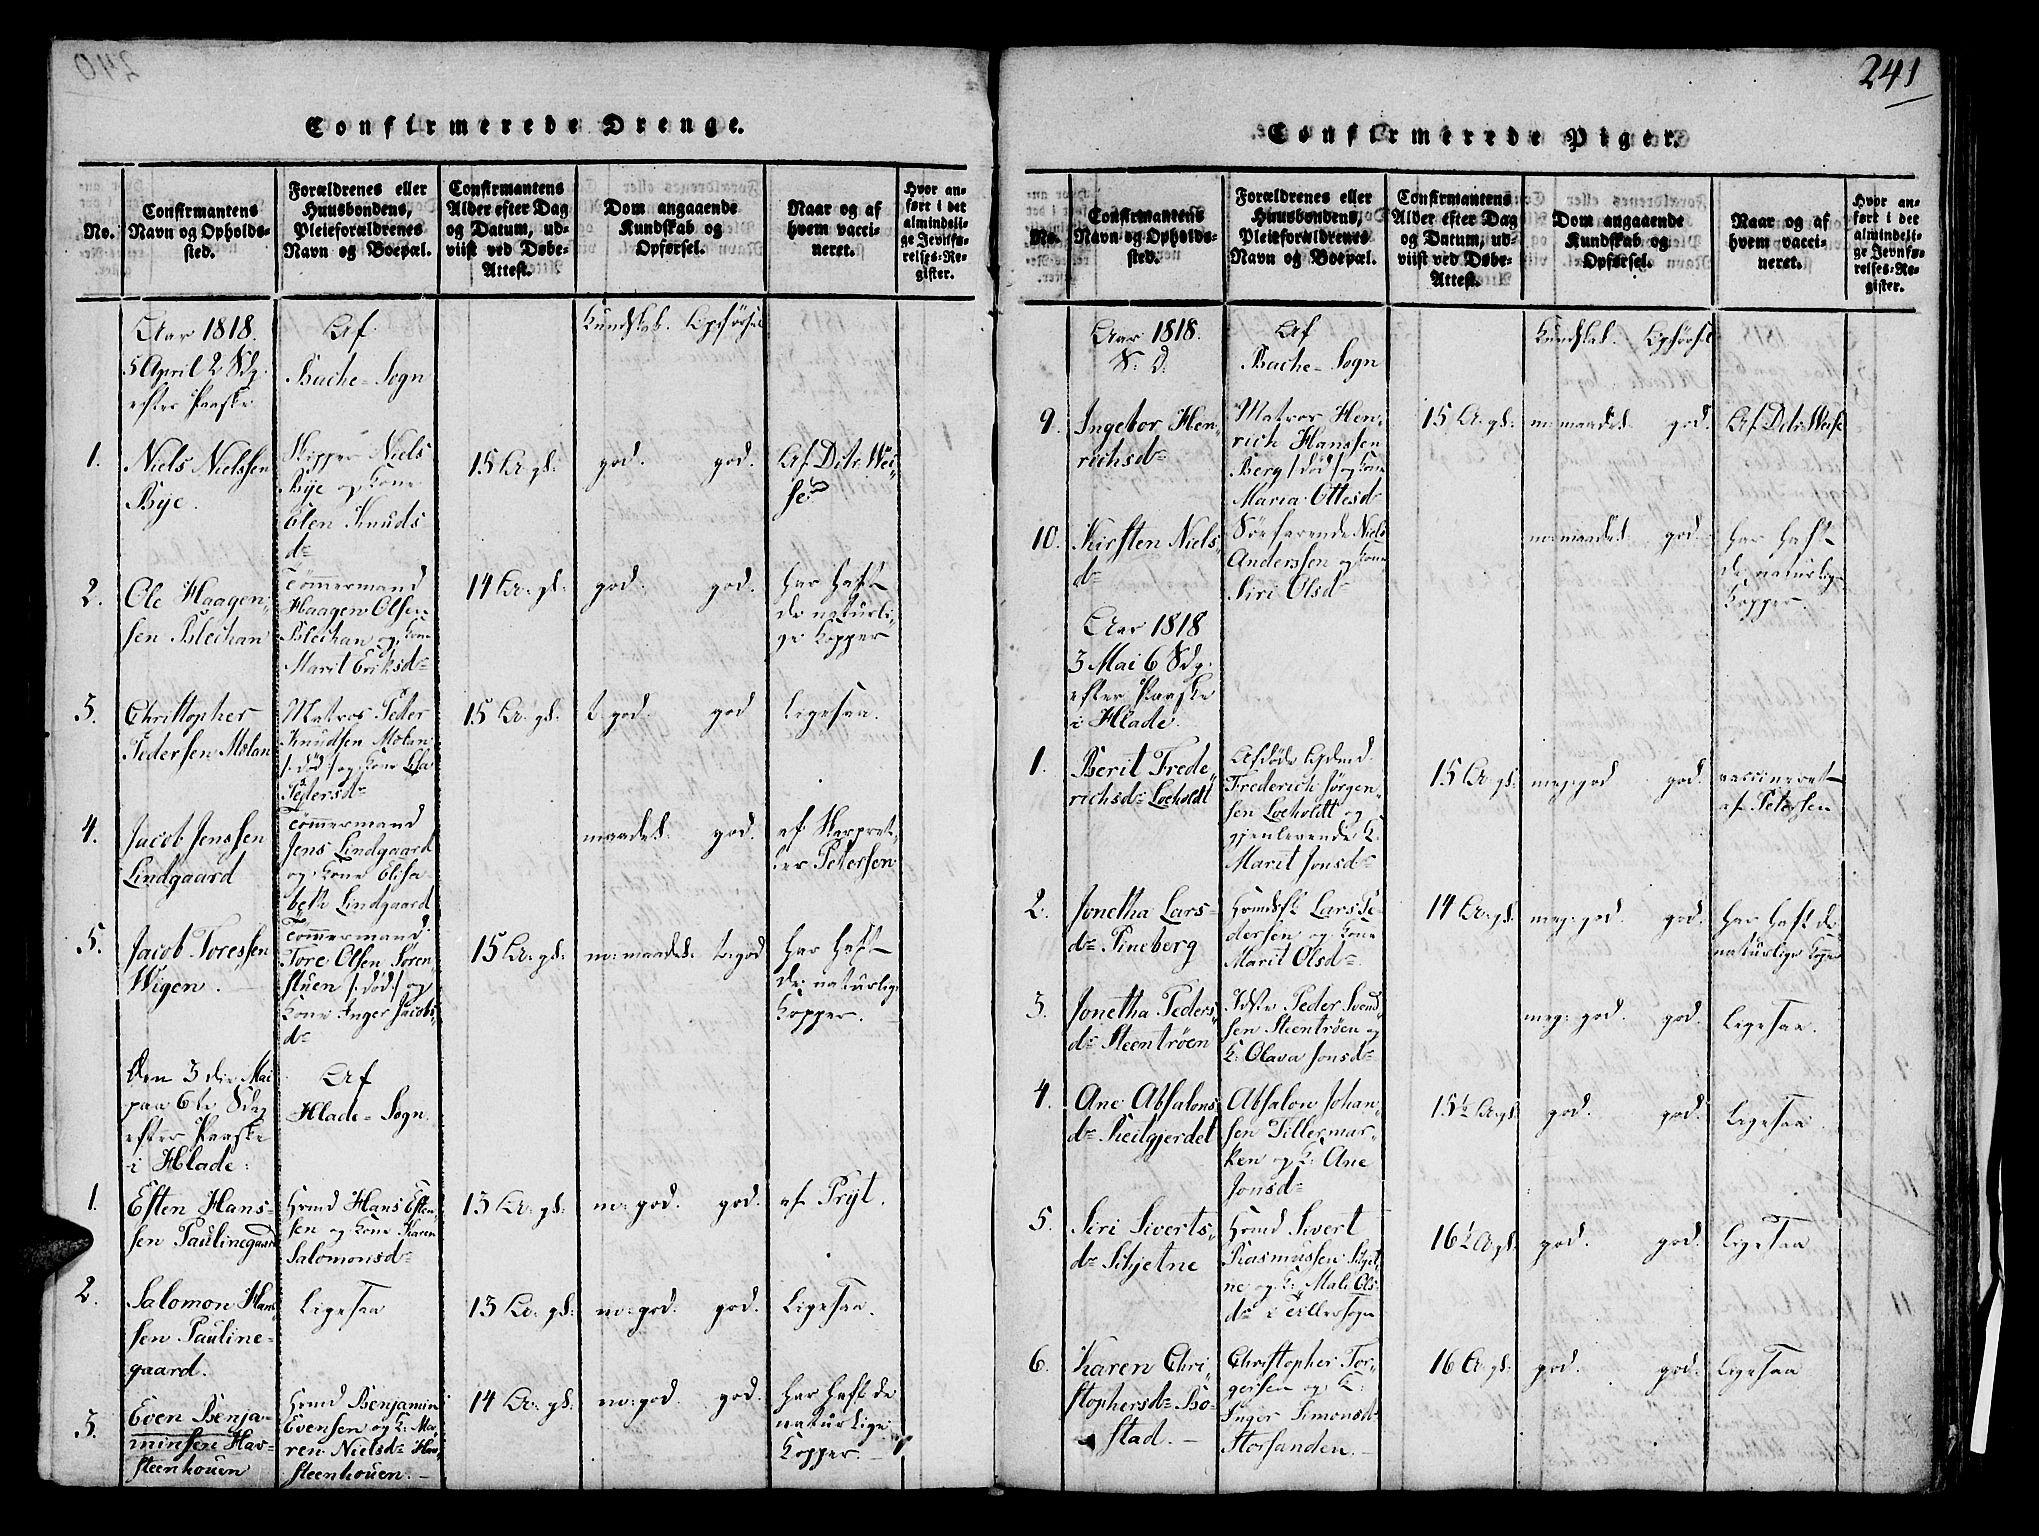 240
Confirmerede Drenge.
No.
Confirmantens
Navn og Opholds-
sted.
Forældrenes eller
Huusbondens,
Pleieforældrenes
Navn og Boepæl.
Confirmantens
Alder efter Dag
og Datum, ud-
viist ved Døbe-
Attest.
Dom angaaende
Kundskab og
Opførsel.
Naar og af
hvem vacci-
neret.
Hvor an-
ført i det
almindeli-
ge Jevnfø-
relses-Re-
gister.
Aar 1818.
5 April 2 Sdg.
efter Paaske
Af
Bache-Sogn
Kundskab. Opførsel
1.
Niels Nielssen
Bye.
Skipper Niels
Bye og Kone
Elen Knuds
dr
15 Ar: gl:
god. god.
Af Ditr. Wei-
se
2.
Ole Haagen-
sen Blechan
Tömmermand
Haagen Olsen
Blechan og Kone
Marit Eriksdr
14 Ar: gl:
god. god.
har haft
de naturli-
ge Kopper
3.
Christopher
Pedersen Molan
Matros Peder
Knudsen Molan
/: död :/ og Kone
Pedersdr
15 Ar: gl:
t: god. god
Ligesaa.
4.
Jacob Jenssen
Lindgaard
Tömmermand
Jens Lindgaard
og Kone Elisa
beth Lindgaard
maadel: god.
af Skarpret-
ter Petersen
5.
Jacob Toressen
Wigen.
Tömmermand.
Tore Olsen Soren-
stuen /: död :/ og
Kone Inger Jacobs-
dr
15 Ar: gl:
m: maadel: t: god
har haft
de naturlige
Kopper.
Den 3 die Mai
paa 6te Sdag
efter Paaske
i Hlade:
Af
Hlade-Sogn.
1.
Esten Hans-
sen Paulinegaard
Hmd Hans Esten-
sen og Kone Karen
Salomonsdr
13 Ar: gl:
m: god. god.
af Pryt.
2.
Salomon Han
sen Pauline-
gaard.
Ligesaa
13 Ar: gl:
m: god. god.
Ligesaa.
3.
Even Benja-
minsen Hav-
steenhouen
Hmd Benjamin
Evensen og K: Ma-
ren Nielsdr Hav
steenhouen.
14 Ar: gl:
m: god god.
har haft de
naturlige
Kopper.
241
Confirmerede Piger.
No.
Confirmantens
Navn og Opholds-
sted.
Forældrenes eller
Huusbondens,
Pleieforældrenes
Navn og Boepæl.
Confirmantens
Alder efter Dag
og Datum, ud-
viist ved Døbe-
Attest.
Dom angaaende
Kundskab og
Opførsel.
Naar og af
hvem vacci-
neret.
Hvor an-
ført i det
almindeli-
ge Jevnfø-
relses-Re-
gister.
Aar 1818.
S: D:
Af
Bache-Sogn
Kundskab. Opførsel
9.
Ingebor Hen-
richsdr
Matros Hen-
rich Hanssen
Berg /: död :/ og Kone
Maria Ottesdr
15 Ar: gl:
m: maadel: god.
Af Ditr. Weise
10.
Kirsten Niels-
dr
Søefarende Niels
Anderssen og Kone
Siri Olsdr
m: maadel: god.
har haft
de naturlige
Kopper.
Aar 1818
3 Mai 6 Sdg.
efter Paaske
i Hlade.
1.
Berit Frede-
richsdr Loeholdt
Afdöde
Frederich Jörgen-
sen Loeholdt og
gjenlevende K:
Marit Jonsdr
15 Ar: gl:
meg: god god.
vaccineret
af Petersen
2.
Jonetha Lars-
dr Pineberg
Lars Pe-
dersen og Kone
Marit Olsdr.
14 Ar: gl:
meg: god. god.
har haft de
naturlige Kopper
3.
Jonetha Peders-
dr Steentröen
Peder Svend
sen Steentröen og
K: Olava Jonsdr
meg: god. god.
Ligesaa.
4.
Ane Absalons-
dr Reilgjerdet
Absalon Johan-
sen Tillermar-
ken og K: Ane
Jonsdr
15½ Ar: gl:
god. god.
Ligesaa.
5.
Siri Siverts-
dr Schjetne
Hmd Sivert
Rasmussen Schjet-
ne og K: Mali Ols-
dr i Tillersogn
16½ Ar: gl:
god. god.
Ligesaa
6.
Karen Chri-
stophersdr Bo-
stad.
Christopher Tor-
gersen og K:
Inger Simonsdr
Storsanden.
16 Ar: gl:
god. god.
Ligesaa